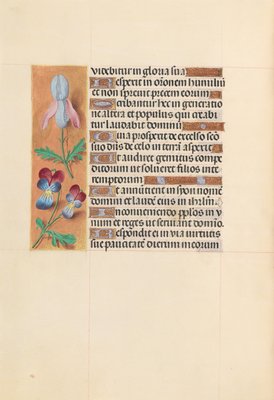 videbitur in gloria sua
Respexit in orõnem humiliũ
et non sprevit precem eorum
Scribantur hec in generatio
ne altera et populus qui creabi
tur laudabit dominũ
Quia prospexit de excelso scõ
suo dñs de celo in terrã aspexit
Ut audiret gemitus compe
ditorum ut solveret filios inte
remptorum
Ut annũtient in syon nomẽ
domini et laudẽ eius in ihrlm̃
In conveniendo pplõs in v
num et reges ut serviant dom̃o
Respondit ei in via virtutis
sue paucitatẽ dierum meorum